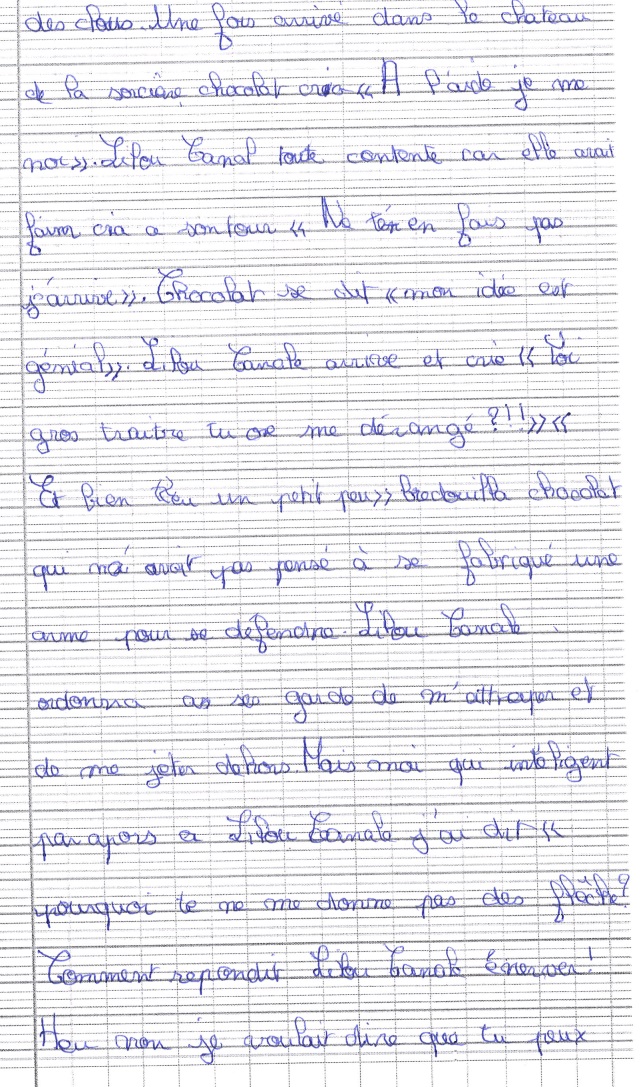 des clous. Une fois arrivé dans le chateau
de la sorcière chocolat cria « A l'aide je me
noi ». Lilou Canal toute contente car elle avait
faim cria a son tour « Ne t'en en fais pas
j'arrive ». Chocolat se dit « mon idée est
génial ». Lilou Canale arrive et crie « Toi
gros traitre tu ose me dérangé ?!! » «
Et bien un petit peu » bredouilla chocolat
qui avait pas pensé à se fabriqué une
arme pour se défendre. Lilou Canale
ordonna as ses garde de m'attraper et
de me jeter dehors. Mais moi qui inteligent
par apors a Lilou Canale j'ai dit «
pourquoi te ne me donne pas des flèche ?
Comment repondit Lilou Canale énerver !
Heu non je voulait dire que tu peux